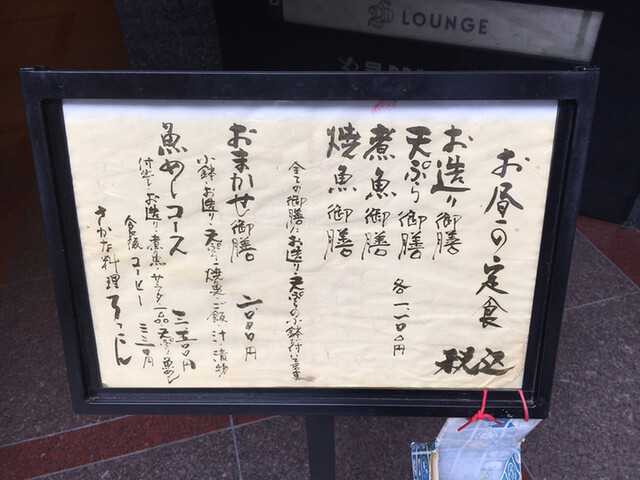 LOUNGE
お昼の定食
税込
お造り御膳
天ぷら御膳
煮魚御膳
焼魚御膳
各一、一〇〇円
全ての御膳にお造り天ぷらの小鉢付
おまかせ御膳
小鉢・お造り・天ぷら・焼魚・ご飯・汁・漬物
魚めしコース
付出し・お造り・煮魚・サラダ・一品・天ぷら・魚めし
食後コーヒー
さかな料理